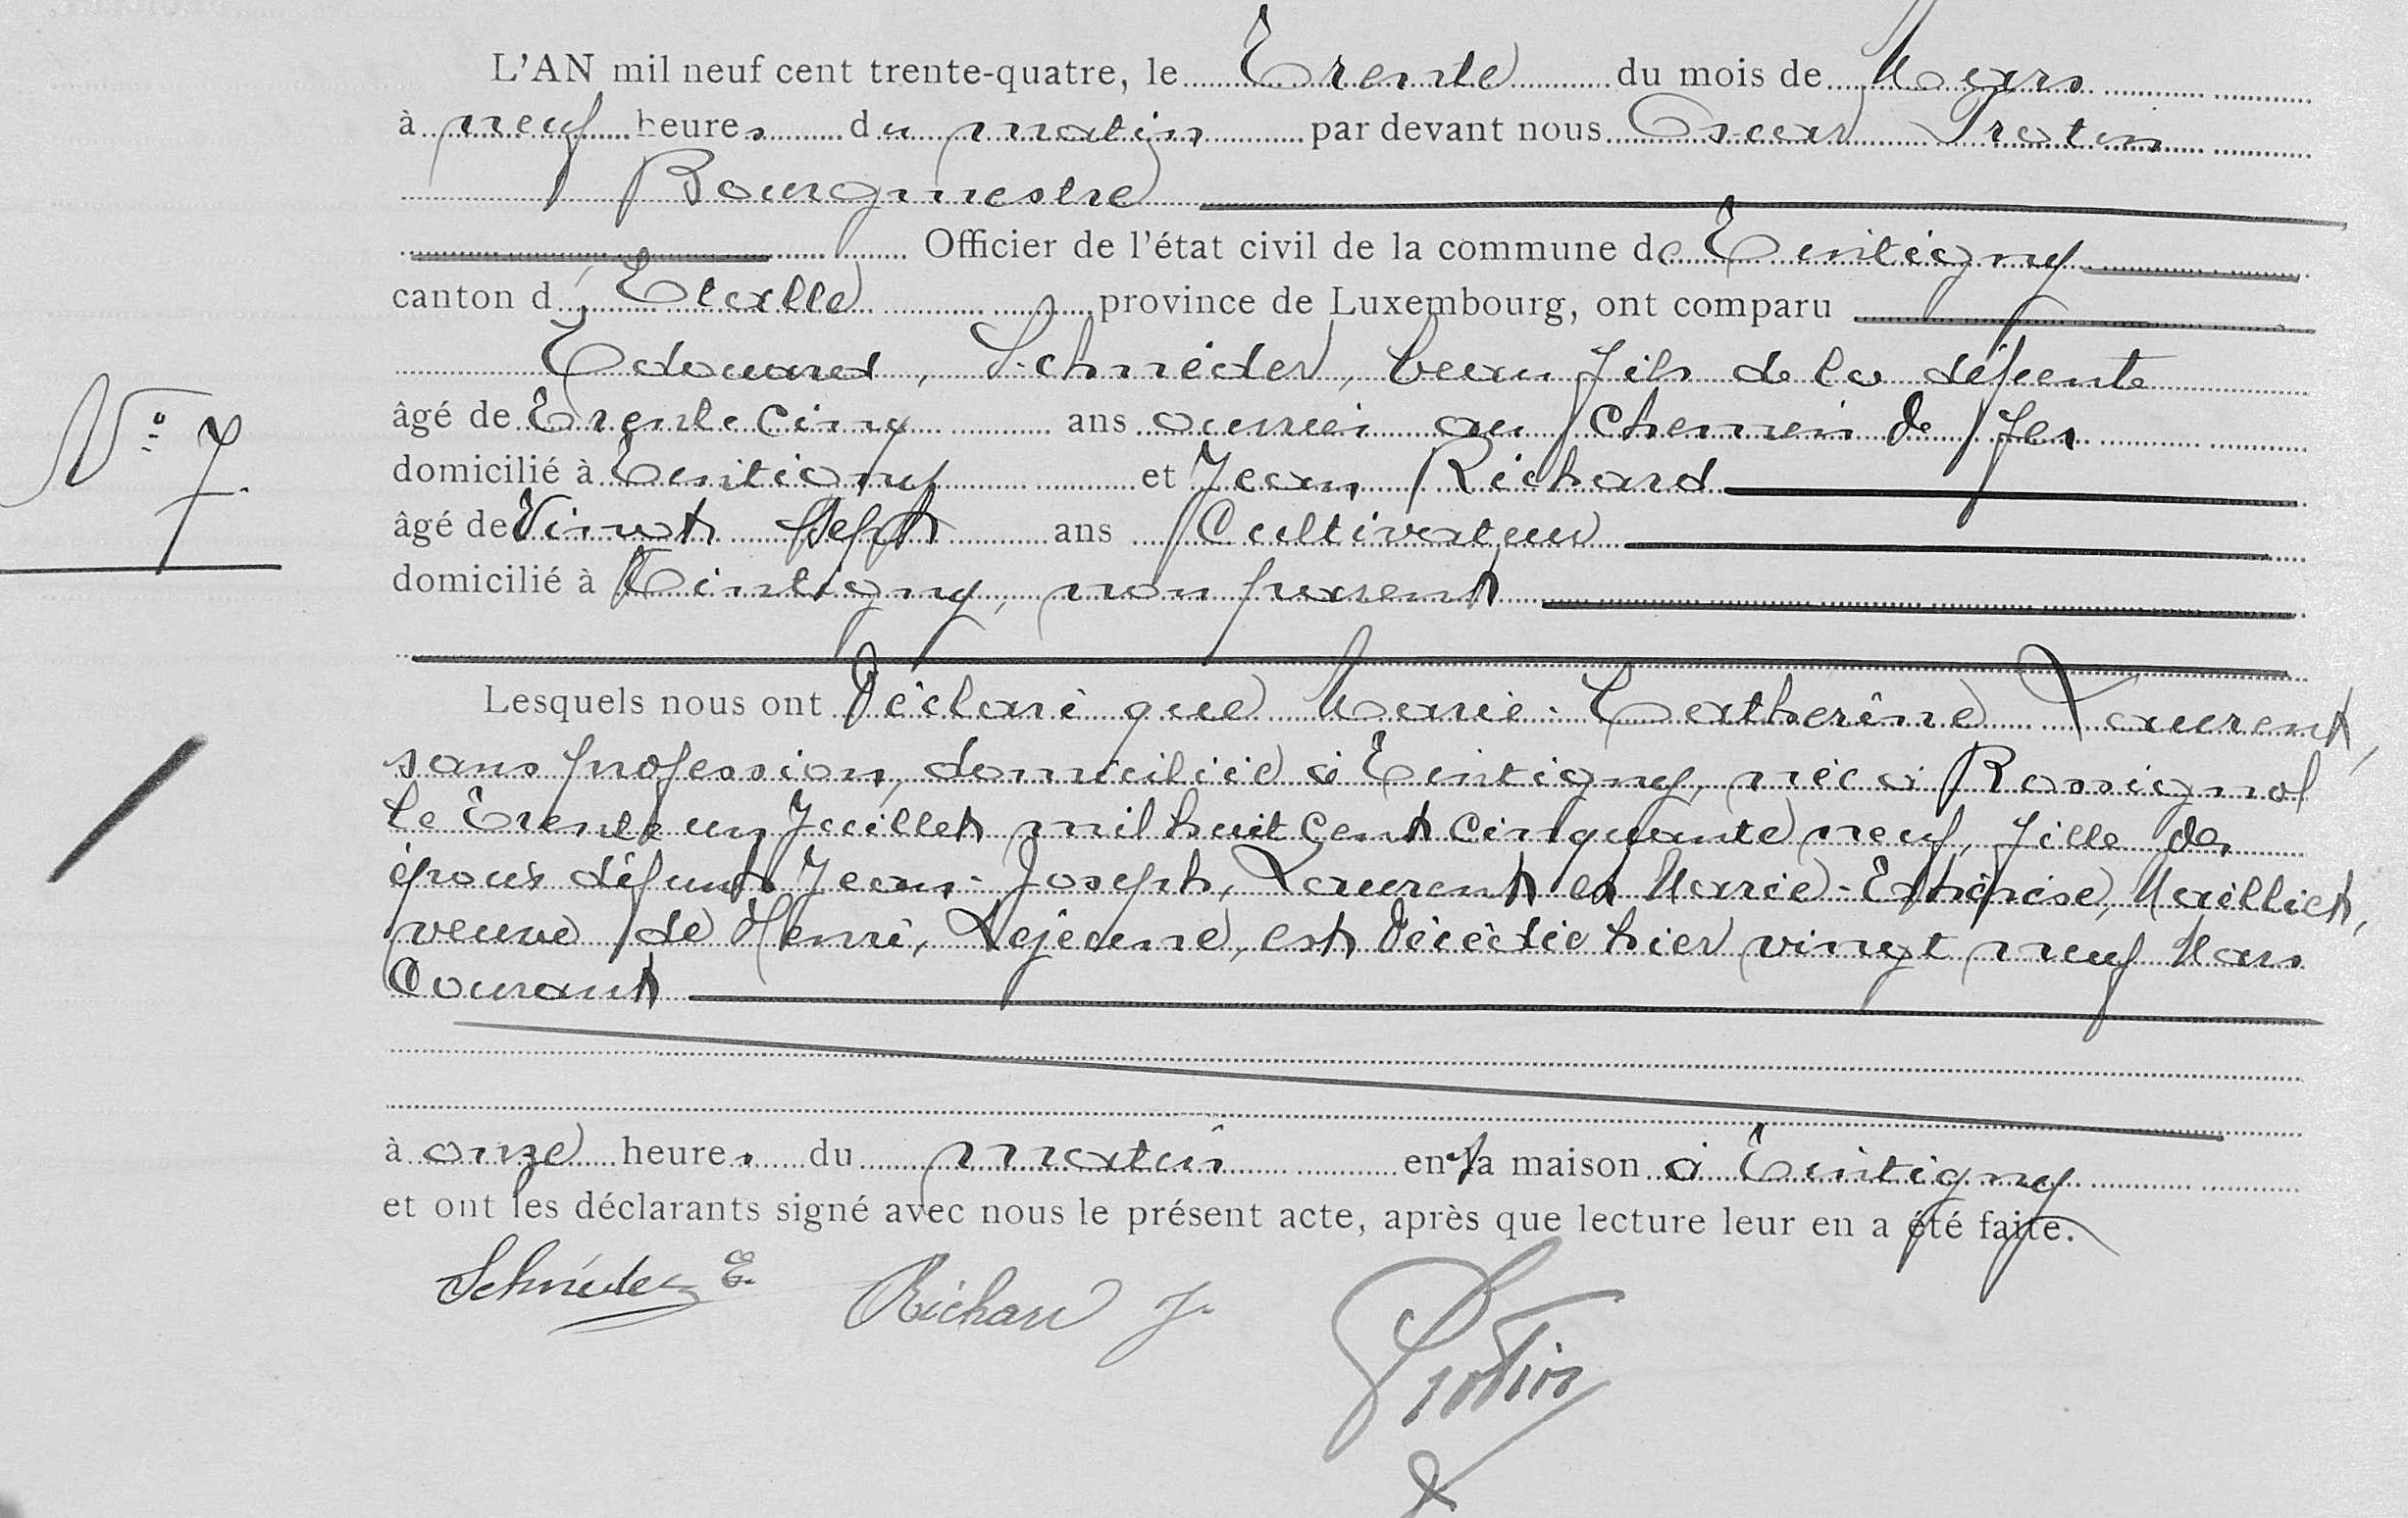 L'AN mil neuf cent trente-quatre, le Trente du mois de Mars
à neuf heures du matin par devant nous Oscar Protin
Bourgmestre
Officier de l'état civil de la commune de Tintigny
canton d'Etalle province de Luxembourg, ont comparu
Edouard, Schnéder, beau fils de la défunte
âgé de Trente cinq ans ouvrier au chemin de fer
domicilié à Tintigny et Jean Richard
âgé de Vingt Sept ans Cultivateur
domicilié à Tintigny, non parent
N° 7
Lesquels nous ont Déclaré que Marie-Catherine Laurent,
sans profession, domiciliée à Tintigny, née à Rossignol
le Trente un Juillet mil huit cent cinquante neuf, fille des
époux défunts Jean-Joseph, Laurent et Marie-Thérèse,
veuve de Henri, Lejeune, est Décédée hier vingt neuf Mars
Courant
à onze heures du matin en sa maison à Tintigny
et ont les déclarants signé avec nous le présent acte, après que lecture leur en a été faite.
Schnéder E. Richard J. Protin